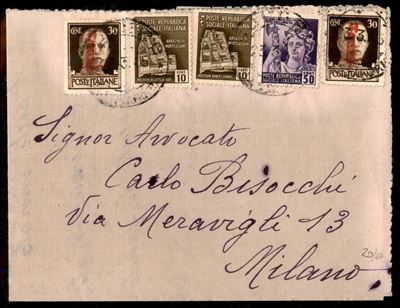 30 30
POSTE ITALIANE
POSTE REPUBBLICA
SOCIALE ITALIANA
10
POSTE REPUBBLICA
SOCIALE ITALIANA
10
POSTE REPUBBLICA
SOCIALE ITALIANA
50
30
POSTE ITALIANE
Signor Avvocato
Carlo Bisocchi
Via Meravigli 13
Milano